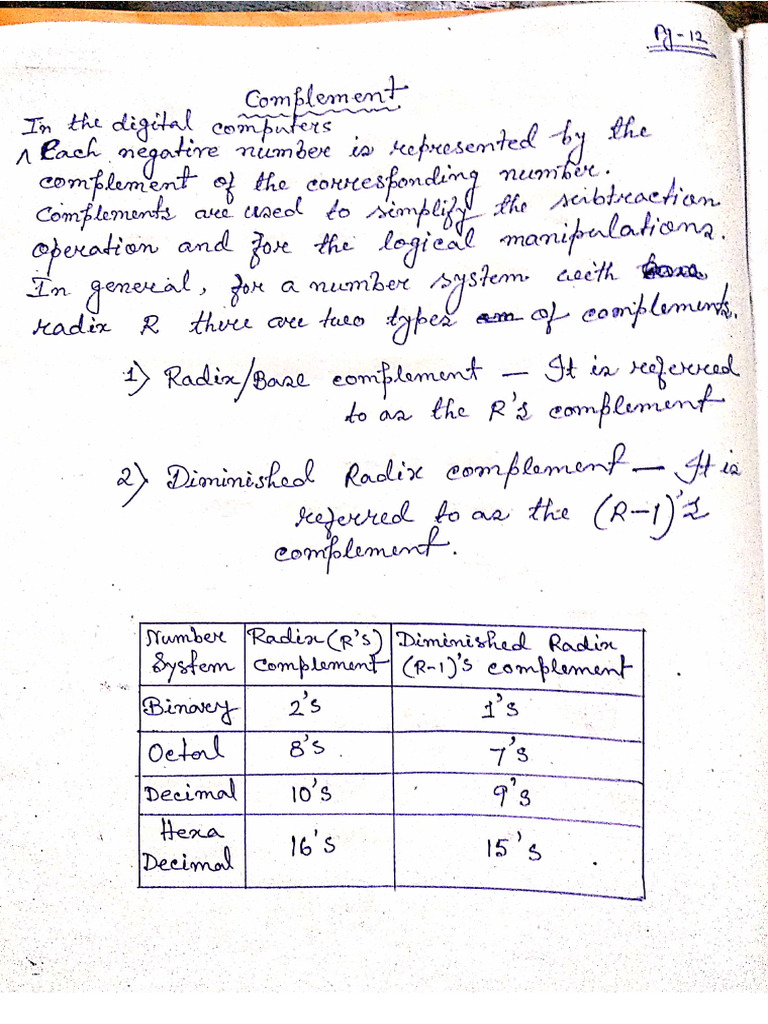 Pg-12
Complement
In the digital computers
^ Each negative number is represented by the
complement of the corresponding number.
Complements are used to simplify the subtraction
operation and for the logical manipulations.
In general, for a number system with
radix R there are two types of complements.
1) Radix/Base complement — It is referred
to as the R's complement
2) Diminished Radix complement — It is
referred to as the (R-1)'s
complement.
Number Radix (R's) Diminished Radix
System Complement (R-1)'s complement
Binary 2's 1's
Octal 8's 7's
Decimal 10's 9's
Hexa
Decimal 16's 15's